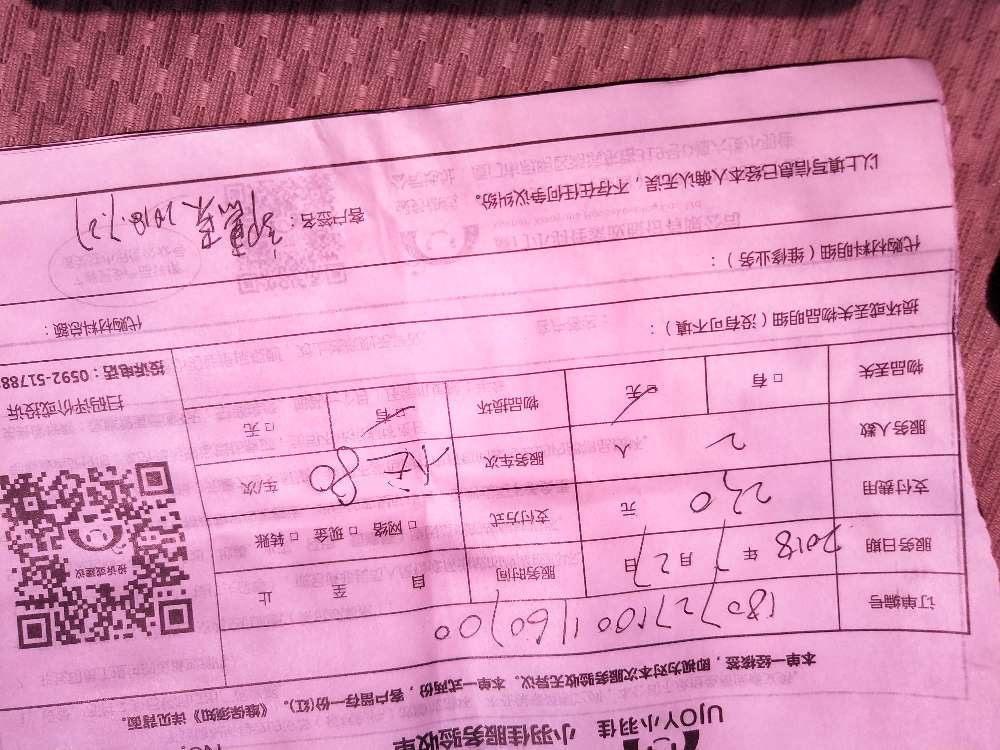 UJOY小羽佳 小羽佳服务验收单
本单一经核签，即视为对本次服务验收无异议。本单一式两份，客户留存一份(红)。《维保须知》详见背面。
订单编号
服务日期 2018年7月27日 服务时间 自 至 止
支付费用 220 元 支付方式 □网络 □现金 □转账
服务人数 2 人 服务车次 80 车/次
物品丢失 □有 □无 物品损坏 □有 □无
投诉或建议
扫码评价或投诉
投诉电话：0592-51788
损坏或丢失物品明细（没有可不填）：
代购材料明细（维修业务）：
代购材料总额：
以上填写信息已经本人确认无误，不存在任何争议纠纷。
客户签名： 2018.7.27